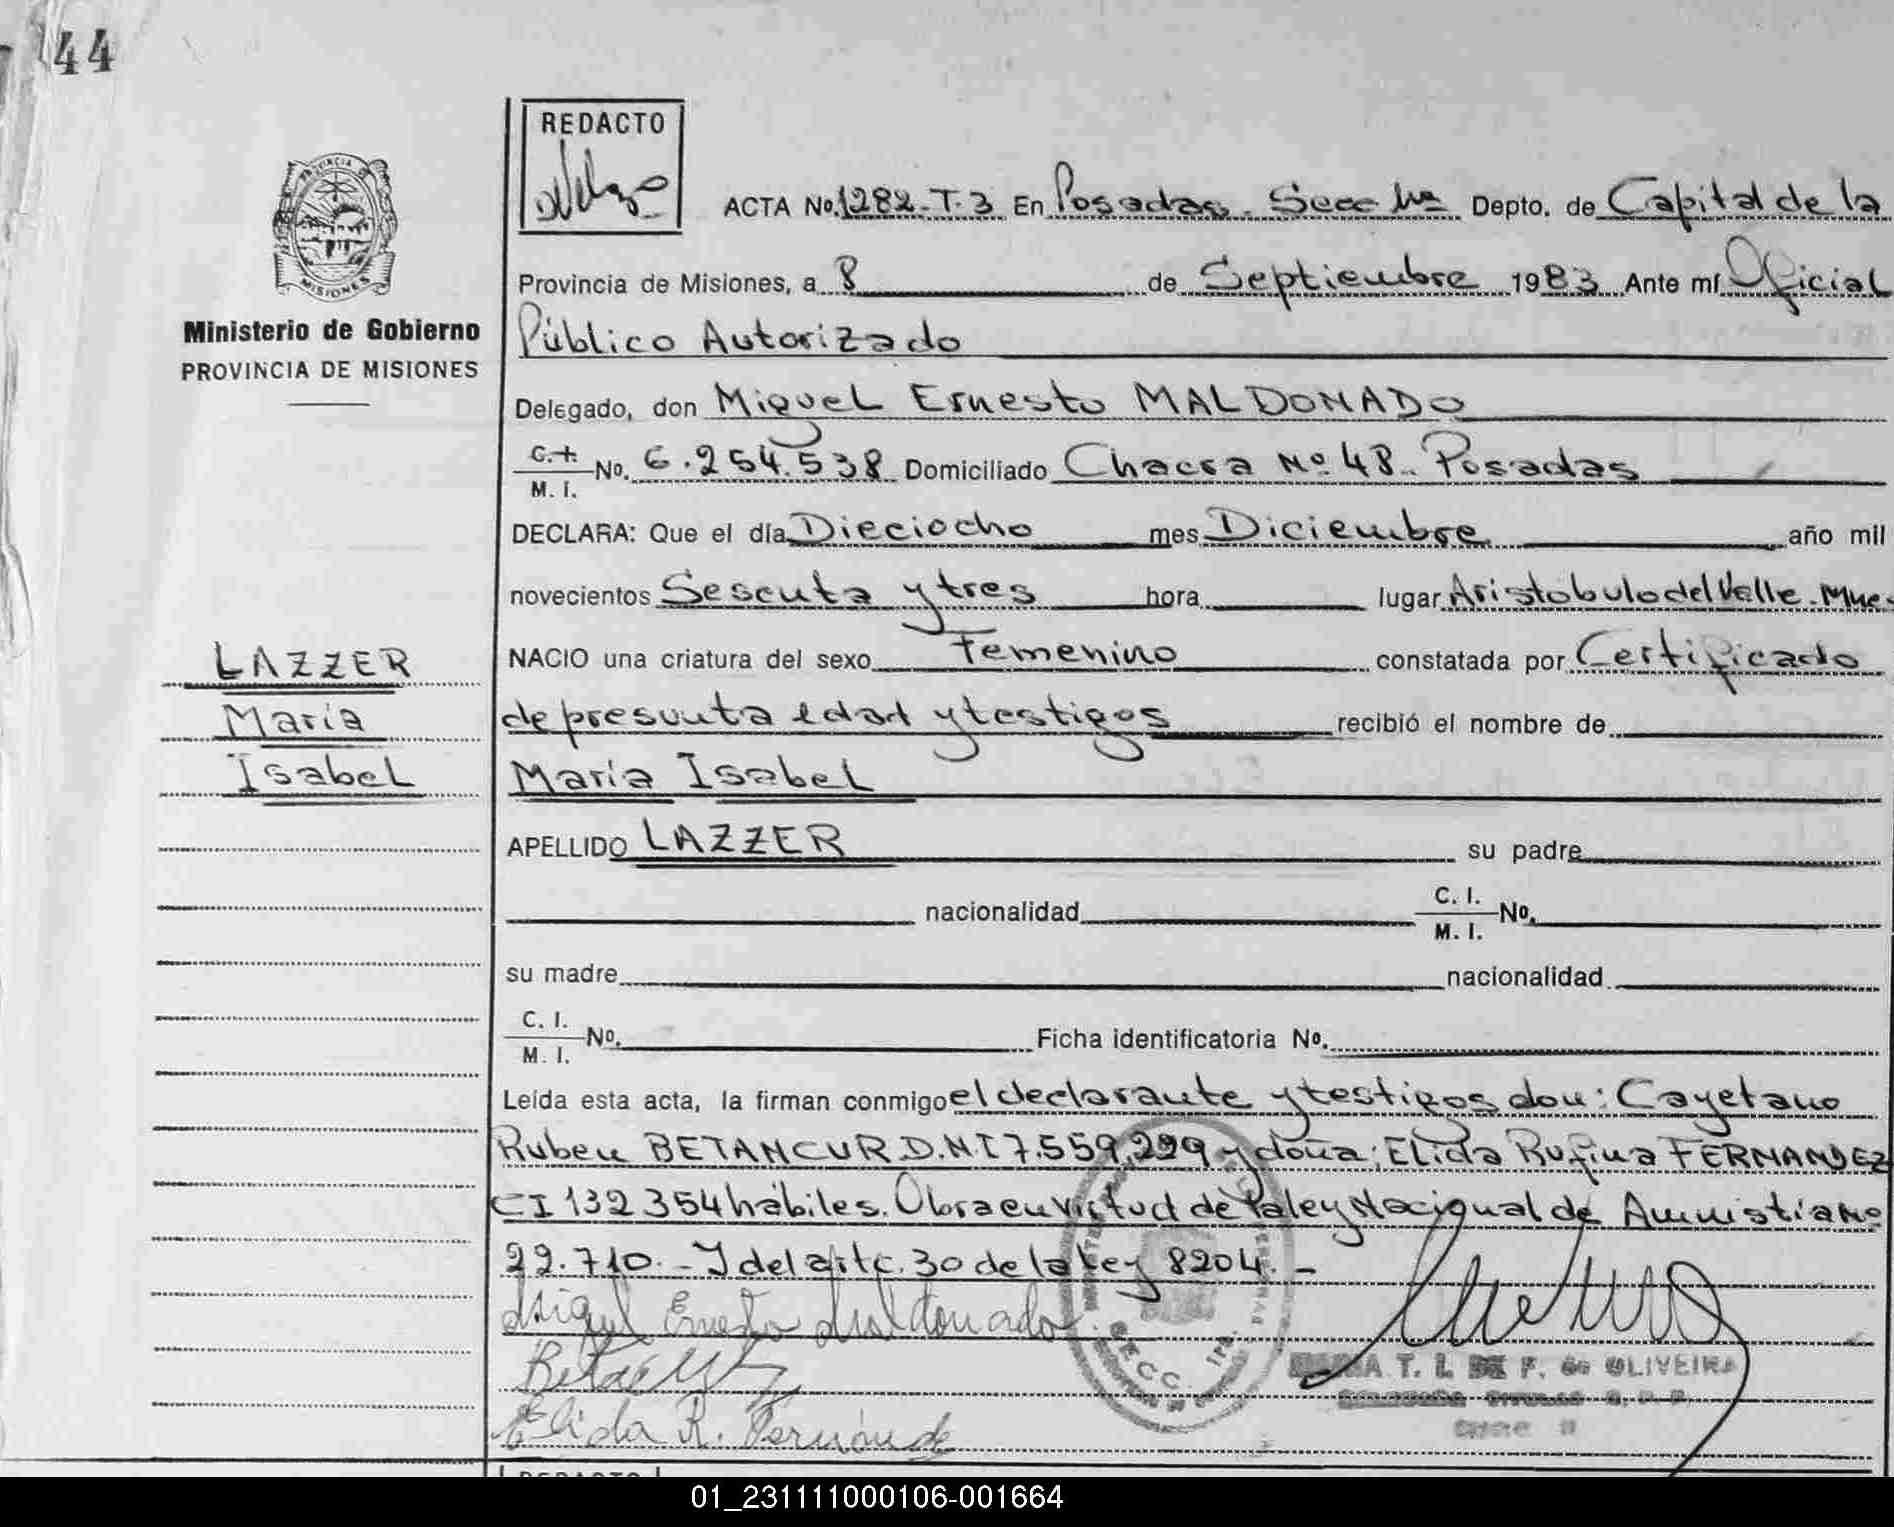 144
REDACTO
PROVINCIA DE
MISIONES
Ministerio de Gobierno
PROVINCIA DE MISIONES
ACTA No. 1282-T.3 En Posadas. Secc 1ra Depto. de Capital de la
Provincia de Misiones, a 8 de Septiembre 1983 Ante mí Oficial
Público Autorizado
Delegado, don Miguel Ernesto MALDONADO
C. I. M. I. No. 6.254.538 Domiciliado Chacra Nº 48. Posadas
DECLARA: Que el día Dieciocho mes Diciembre año mil
novecientos Sesenta y tres hora lugar Aristobulo del Valle. Mnes.
NACIO una criatura del sexo Femenino constatada por Certificado
de presunta edad y testigos recibió el nombre de
María Isabel
APELLIDO LAZZER su padre
nacionalidad C. I. M. I. No.
su madre nacionalidad
C. I. M. I. No. Ficha identificatoria No.
Leída esta acta, la firman conmigo el declarante y testigos don: Cayetano
Ruben BETANCUR D.N.I 7.559.299 y doña: Elida Rufina FERNANDEZ
CI 132354 hábiles. Obra en virtud de la ley Nacional de Amnistia Nº
22.710.- Y del artc. 30 de la ley 8204.-
Miguel Ernesto Maldonado
Elida R. Fernández
LAZZER
María
Isabel
T. L. DE F. de OLIVEIRA
REDACTO
01_231111000106-001664